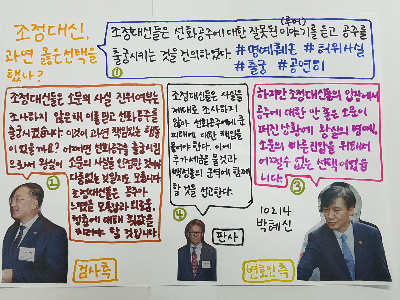 조정대신,
과연 옳은선택을
했나?
(루머)
조정대신들은 선화공주에 대한 잘못된 이야기를 듣고 공주를
출궁시키는 것을 건의하였다. #명예훼손 #허위사실
#출궁 #공연히
①
조정대신들은 소문의 사실 진위여부도
조사하지 않은채 이를 믿고 선화공주를
출궁시켰습니다. 이것이 과연 책임있는 행동
이 있을까요? 어쩌면 선화공주를 출궁시킴
으로써 왕실이 소문의 사실을 인정한 것과
다름없는 것일지도 모릅니다
조정대신들은 공주가
느꼈을 모욕감과 외로움,
정통에 대해 죗값을
치뤄야 할 것입니다
②
검사측
조정대신들은 사실을
제대로 조사하지
않아 선화공주에게 준
피해에 대한 책임을
물어야 한다. 이에
쌀과
백성들의 할
할 것을 선고한다.
④
판사
하지만 조정대신들의 입장에서
공주에 대한 안 좋은 소문이
퍼진 상황에 왕실의 명예,
소문의 빠른진압을 위해서
어쩔수 없는 선택이었습
니다.
③
10214
박혜신
변호인측